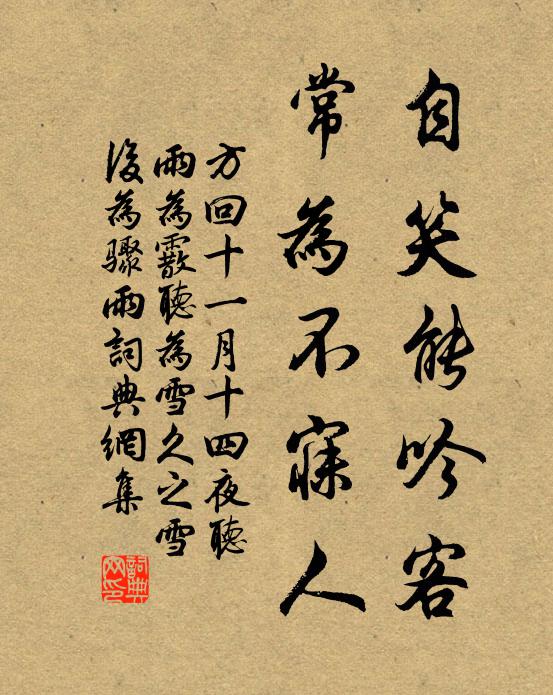 自笑能吟客
常為不寐人
方回十一月十四夜聽
雨為霰聽為雪久之雪
後為驟雨詞典網集
詞典
网印